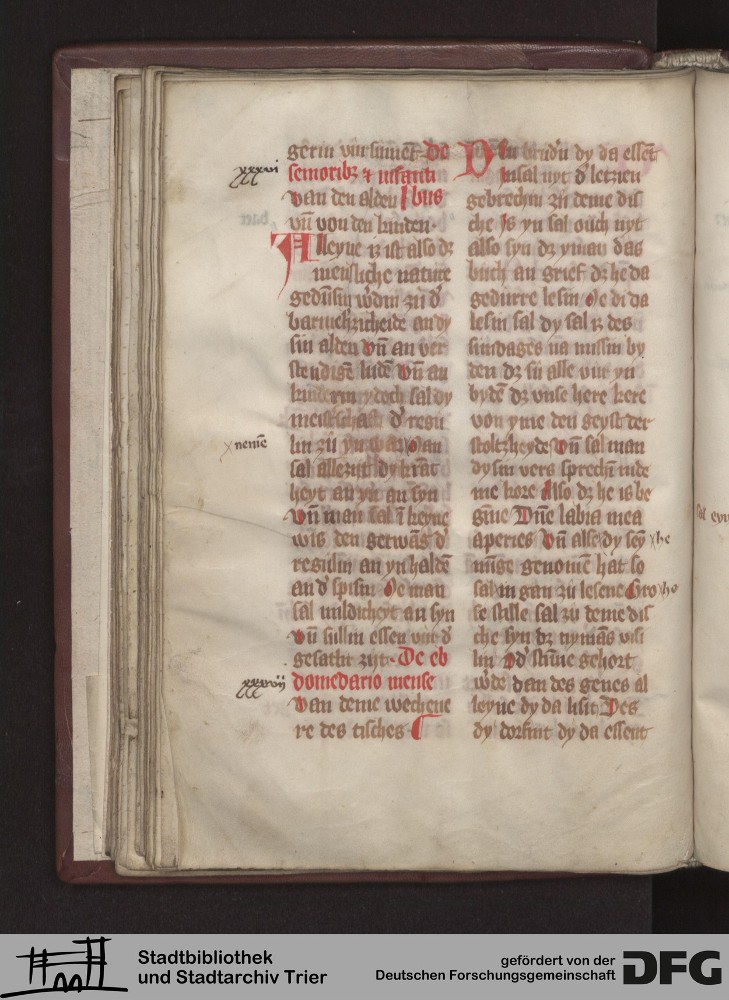 gerin vur sumet De
xxxvii
senioribz et infanti
Van den alden bus
vn von den kinden.
Alleyne iz ist also dz
menschliche nature
gedunsin wdin zu d
barmehzicheide an dy
sin alden vn an ver
stendisē kidē vn an
kinderin ydoch sal dy
meistschaft d regu
lin zu yn Man
x nemē
sal allezijt dy krāc
heyt an yn an syn
vn man sal ī keyne
wis den getwās d
regulin an yn haldē
an d spisin Me man
sal mildicheyt an syn
vn sullin essen vur d
gesatte zijt. De eb
xxxviii
domedario mense
Van deme wechene
re des tisches
Den brudn dy da essēt
insal nyt d letzien
gebrechin zu deme dis
che Is yn sal ouch nyt
also syn dz yman das
buch an grief dz he da
gedurre lesin Me di da
lesin sal dy sal iz des
sundages na missin by
den dz sii alle vur yn
bydē dz vnse here kere
von yme den geyst der
stoltzheyde Vn sal man
dysin vers sprechin inde
me kore Also dz he is be
gine Dne labia mea
aperies Vn alse dy sey x he
nunge genomē hat so
sal in gan zu lesene Gro x he
se stille sal zu deme dis
che syn dz nymās visi
lin Od stimē gehort
wde dan des genes al
leyne dy da lisit Des
dy dorfint dy da essent
sal eyn
Stadtbibliothek
und Stadtarchiv Trier
gefördert von der
Deutschen Forschungsgemeinschaft
DFG